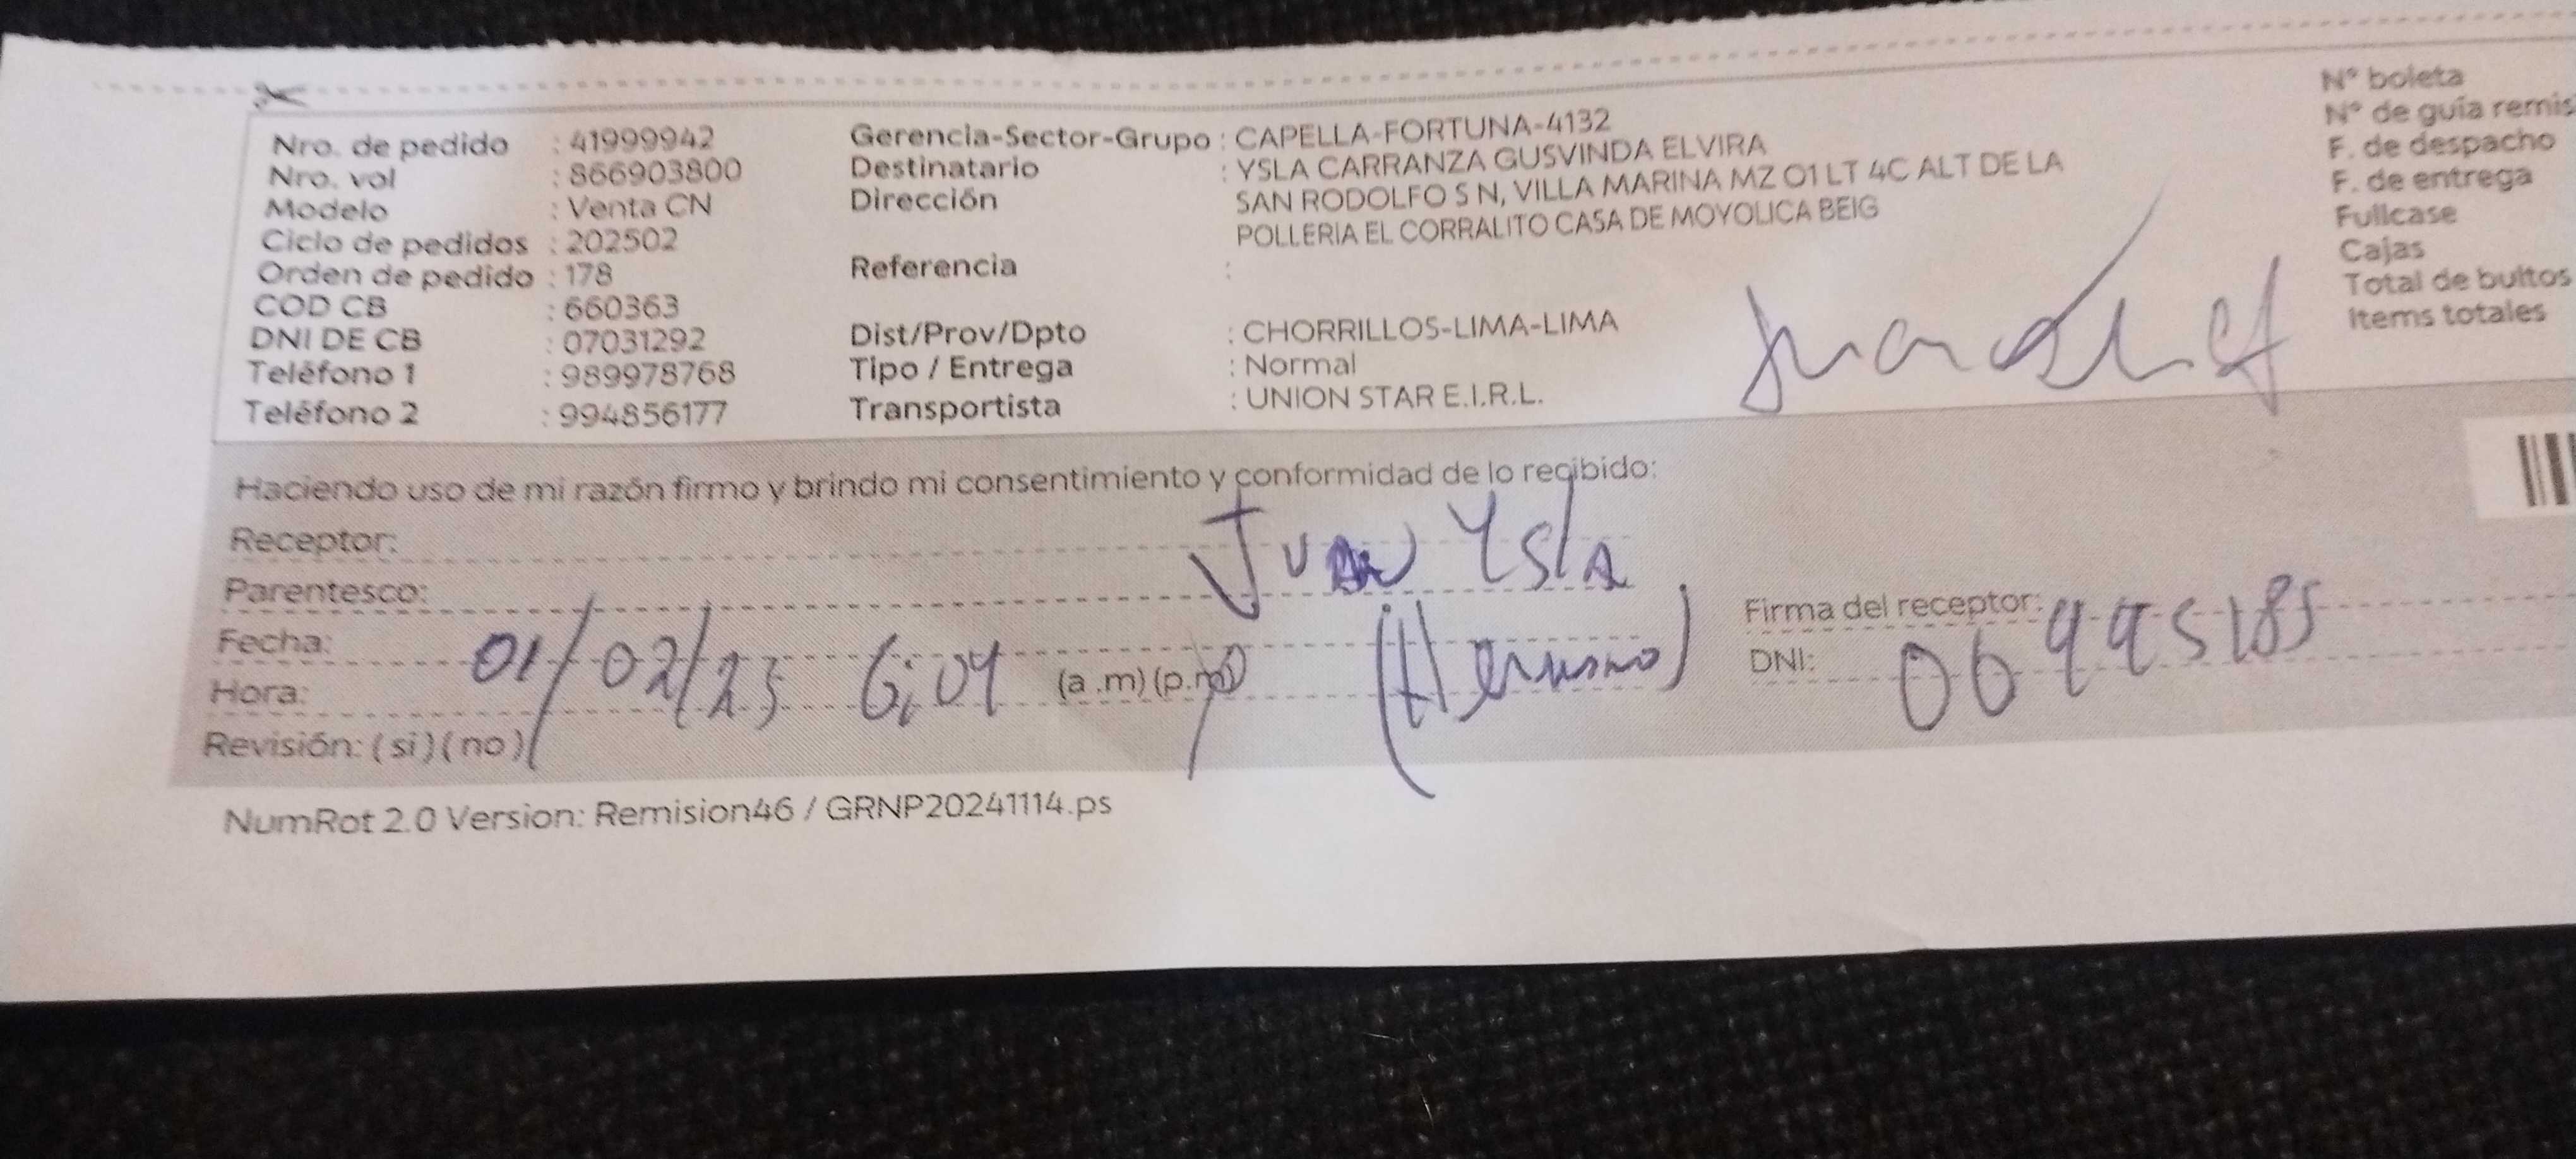 Nro. de pedido : 41999942
Nro. vol : 866903800
Modelo : Venta CN
Ciclo de pedidos : 202502
Orden de pedido : 178
COD CB : 660363
DNI DE CB : 07031292
Teléfono 1 : 989978768
Teléfono 2 : 994856177
Gerencia-Sector-Grupo : CAPELLA-FORTUNA-4132
Destinatario : YSLA CARRANZA GUSVINDA ELVIRA
Dirección SAN RODOLFO S N, VILLA MARINA MZ O1 LT 4C ALT DE LA
POLLERIA EL CORRALITO CASA DE MOYOLICA BEIG
Referencia :
Dist/Prov/Dpto : CHORRILLOS-LIMA-LIMA
Tipo / Entrega : Normal
Transportista : UNION STAR E.I.R.L.
N° boleta
N° de guía remis
F. de despacho
F. de entrega
Fullcase
Cajas
Total de bultos
Items totales
Haciendo uso de mi razón firmo y brindo mi consentimiento y conformidad de lo recibido:
Receptor: Juan Ysla
Parentesco: (Hermano)
Fecha: 01/02/25
Hora: 6:04 (a .m) (p.m)
Revisión: ( si ) ( no )
Firma del receptor:
DNI: 06995185
NumRot 2.0 Version: Remision46 / GRNP20241114.ps